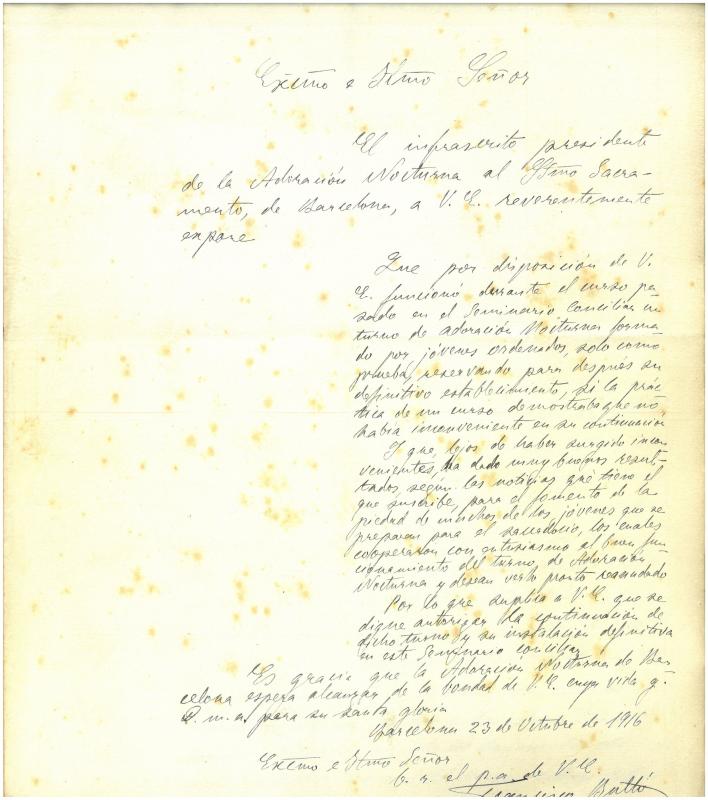 Exmo e Iltmo Señor
El infrascrito presidente
de la Adoración Nocturna al Stmo Sacra-
mento, de Barcelona, a V. E. reverentemente
expone
Que por disposición de V.
E. funcionó durante el curso pa-
sado en el Seminario Conciliar un
turno de Adoración Nocturna forma-
do por jóvenes ordenados, solo como
prueba, reservando para después su
definitivo establecimiento, si la prác-
tica de un curso demostraba que no
había inconveniente en su continuación
Y que, lejos de haber surgido incon-
venientes, ha dado muy buenos resul-
tados, según las noticias que tiene el
que suscribe, para el fomento de la
piedad de muchos de los jóvenes que se
preparan para el sacerdocio, los cuales
cooperaron con entusiasmo al buen fun-
cionamiento del turno de Adoración
Nocturna y desean verlo pronto reanudado
Por lo que suplica a V. E. que se
digne autorizar la continuación de
dicho turno y su instalación definitiva
en este Seminario conciliar
Es gracia que la Adoración Nocturna de Bar-
celona espera alcanzar de la bondad de V. E. cuya vida g.
D. m. a. para su santa gloria
Barcelona 23 de Octubre de 1916
Exmo e Iltmo Señor
b. s. el p. a. de V. E.
Francisco